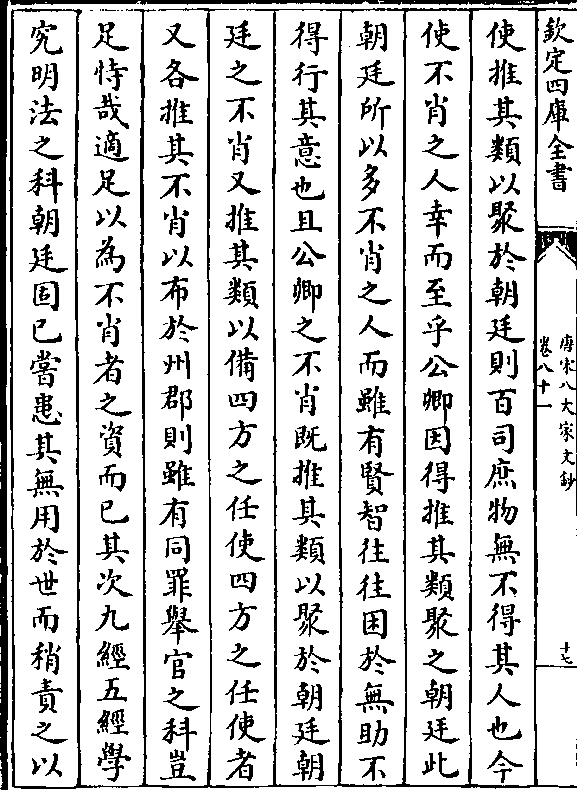 欽定四庫全書
唐宋八大家文鈔
卷八十一
十七
使推其類以聚於朝廷則百司庶物無不得其人也今
使不肖之人幸而至乎公卿因得推其類聚之朝廷此
朝廷所以多不肖之人而雖有賢智往往困於無助不
得行其意也且公卿之不肖既推其類以聚於朝廷朝
廷之不肖又推其類以備四方之任使四方之任使者
又各推其不肖以布於州郡則雖有同罪舉官之科豈
足恃哉適足以為不肖者之資而已其次九經五經學
究明法之科朝廷固已嘗患其無用於世而稍責之以